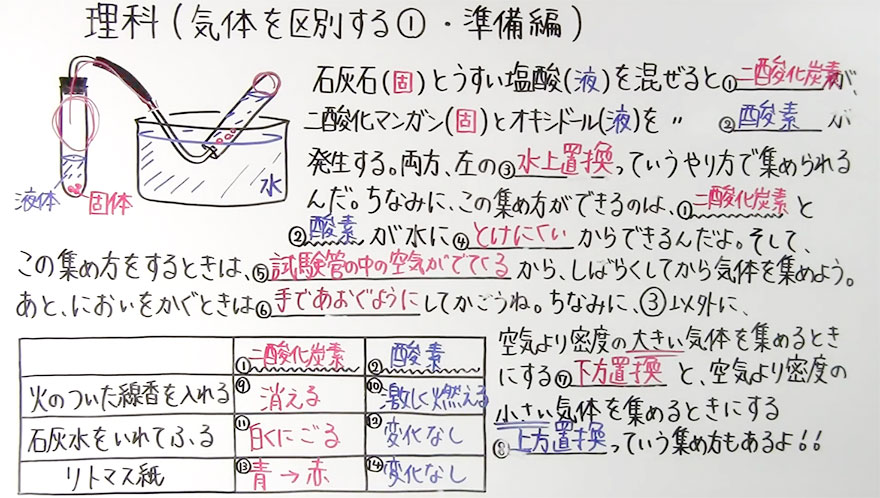 理科(気体を区別する①・準備編)
石灰石(固)とうすい塩酸(液)を混ぜると①二酸化炭素が、
二酸化マンガン(固)とオキシドール(液)を 〃 ②酸素が
発生する。両方、左の③水上置換っていうやり方で集められる
んだ。ちなみに、この集め方ができるのは、①二酸化炭素と
②酸素が水に④とけにくいからできるんだよ。そして、
この集め方をするときは、⑤試験管の中の空気がでてくるから、しばらくしてから気体を集めよう。
あと、においをかぐときは⑥手であおぐようにしてかごうね。ちなみに、③以外に、
空気より密度の大きい気体を集めるとき
にする⑦下方置換と、空気より密度の
小さい気体を集めるときにする
⑧上方置換っていう集め方もあるよ!!
液体
固体
水
①二酸化炭素 ②酸素
火のついた線香を入れる ⑨消える ⑩激しく燃える
石灰水をいれてふる ⑪白くにごる ⑫変化なし
リトマス紙 ⑬青→赤 ⑭変化なし